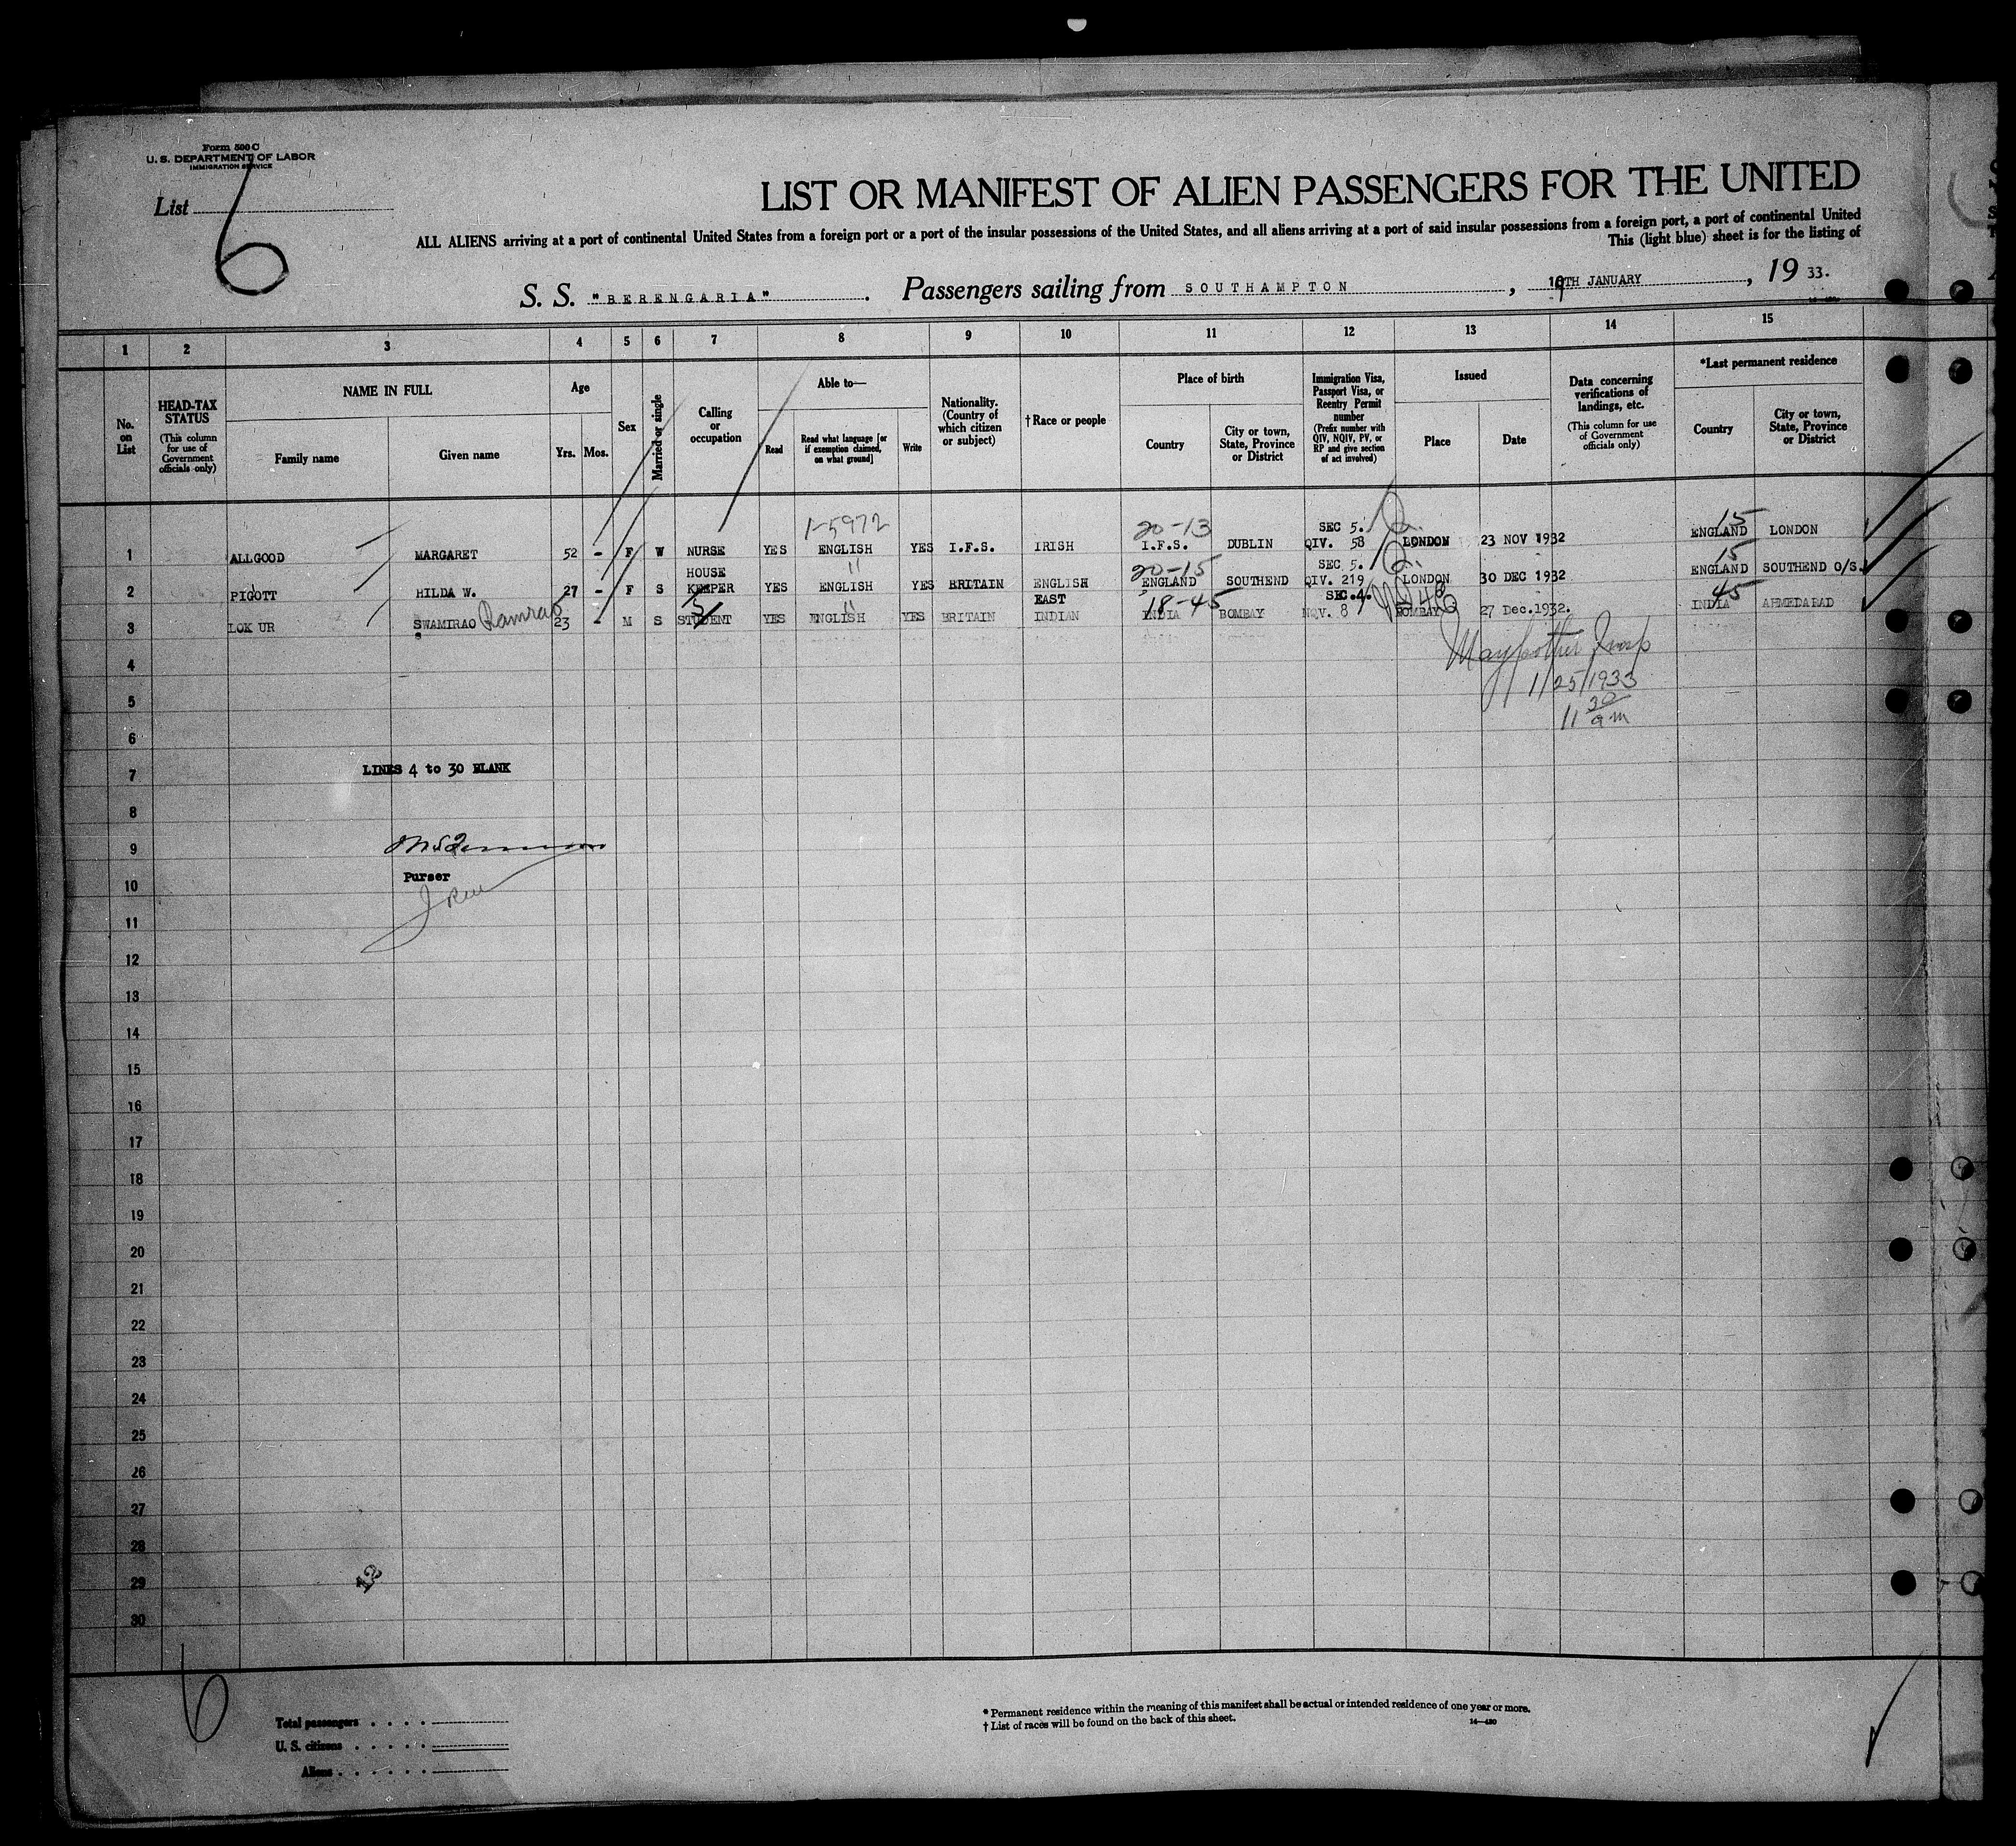 Form 500 C
U. S. DEPARTMENT OF LABOR
IMMIGRATION SERVICE
List 6
LIST OR MANIFEST OF ALIEN PASSENGERS FOR THE UNITED
ALL ALIENS arriving at a port of continental United States from a foreign port or a port of the insular possessions of the United States, and all aliens arriving at a port of said insular possessions from a foreign port, a port of continental United
This (light blue) sheet is for the listing of
S. S. "BERENGARIA" . Passengers sailing from SOUTHAMPTON , TH JANUARY , 19 33.
1 2 3 4 5 6 7 8 9 10 11 12 13 14 15
No. on List
HEAD-TAX STATUS
(This column for use of Government officials only)
NAME IN FULL
Family name
Given name
Age
Yrs. Mos.
Sex
Married or single
Calling or occupation
Able to—
Read
Read what language [or if exemption claimed, on what ground]
Write
Nationality. (Country of which citizen or subject)
† Race or people
Place of birth
Country
City or town, State, Province or District
Immigration Visa, Passport Visa, or Reentry Permit number
(Prefix number with QIV, NQIV, PV, or RP and give section of act involved)
Issued
Place
Date
Data concerning verifications of landings, etc.
(This column for use of Government officials only)
*Last permanent residence
Country
City or town, State, Province or District
1-5972 20-13 SEC 5. 15
1 ALLGOOD MARGARET 52 - F W NURSE YES ENGLISH YES I.F.S. IRISH I.F.S. DUBLIN QIV. 58 LONDON 23 NOV 1932 ENGLAND LONDON
HOUSE " 20-15 SEC 5. 15
2 PIGOTT HILDA W. 27 - F S KEEPER YES ENGLISH YES BRITAIN ENGLISH ENGLAND SOUTHEND QIV. 219 LONDON 30 DEC 1932 ENGLAND SOUTHEND O/S.
" EAST 18-45 SEC.4. 45
3 LOK UR SWAMIRAO Ramrao 23 - M S STUDENT YES ENGLISH YES BRITAIN INDIAN INDIA BOMBAY NQV. 8 BOMBAY 27 Dec.1932. INDIA AHMEDABAD
4
1/25/1933
5
11 30 am
6
7 LINES 4 to 30 BLANK
8
9
10 Purser
11
12
13
14
15
16
17
18
19
20
21
22
23
24
25
26
27
28
29 12
30
6
Total passengers . . . .
U. S. citizens . . . . .
Aliens . . . . . .
* Permanent residence within the meaning of this manifest shall be actual or intended residence of one year or more.
† List of races will be found on the back of this sheet.
14—430